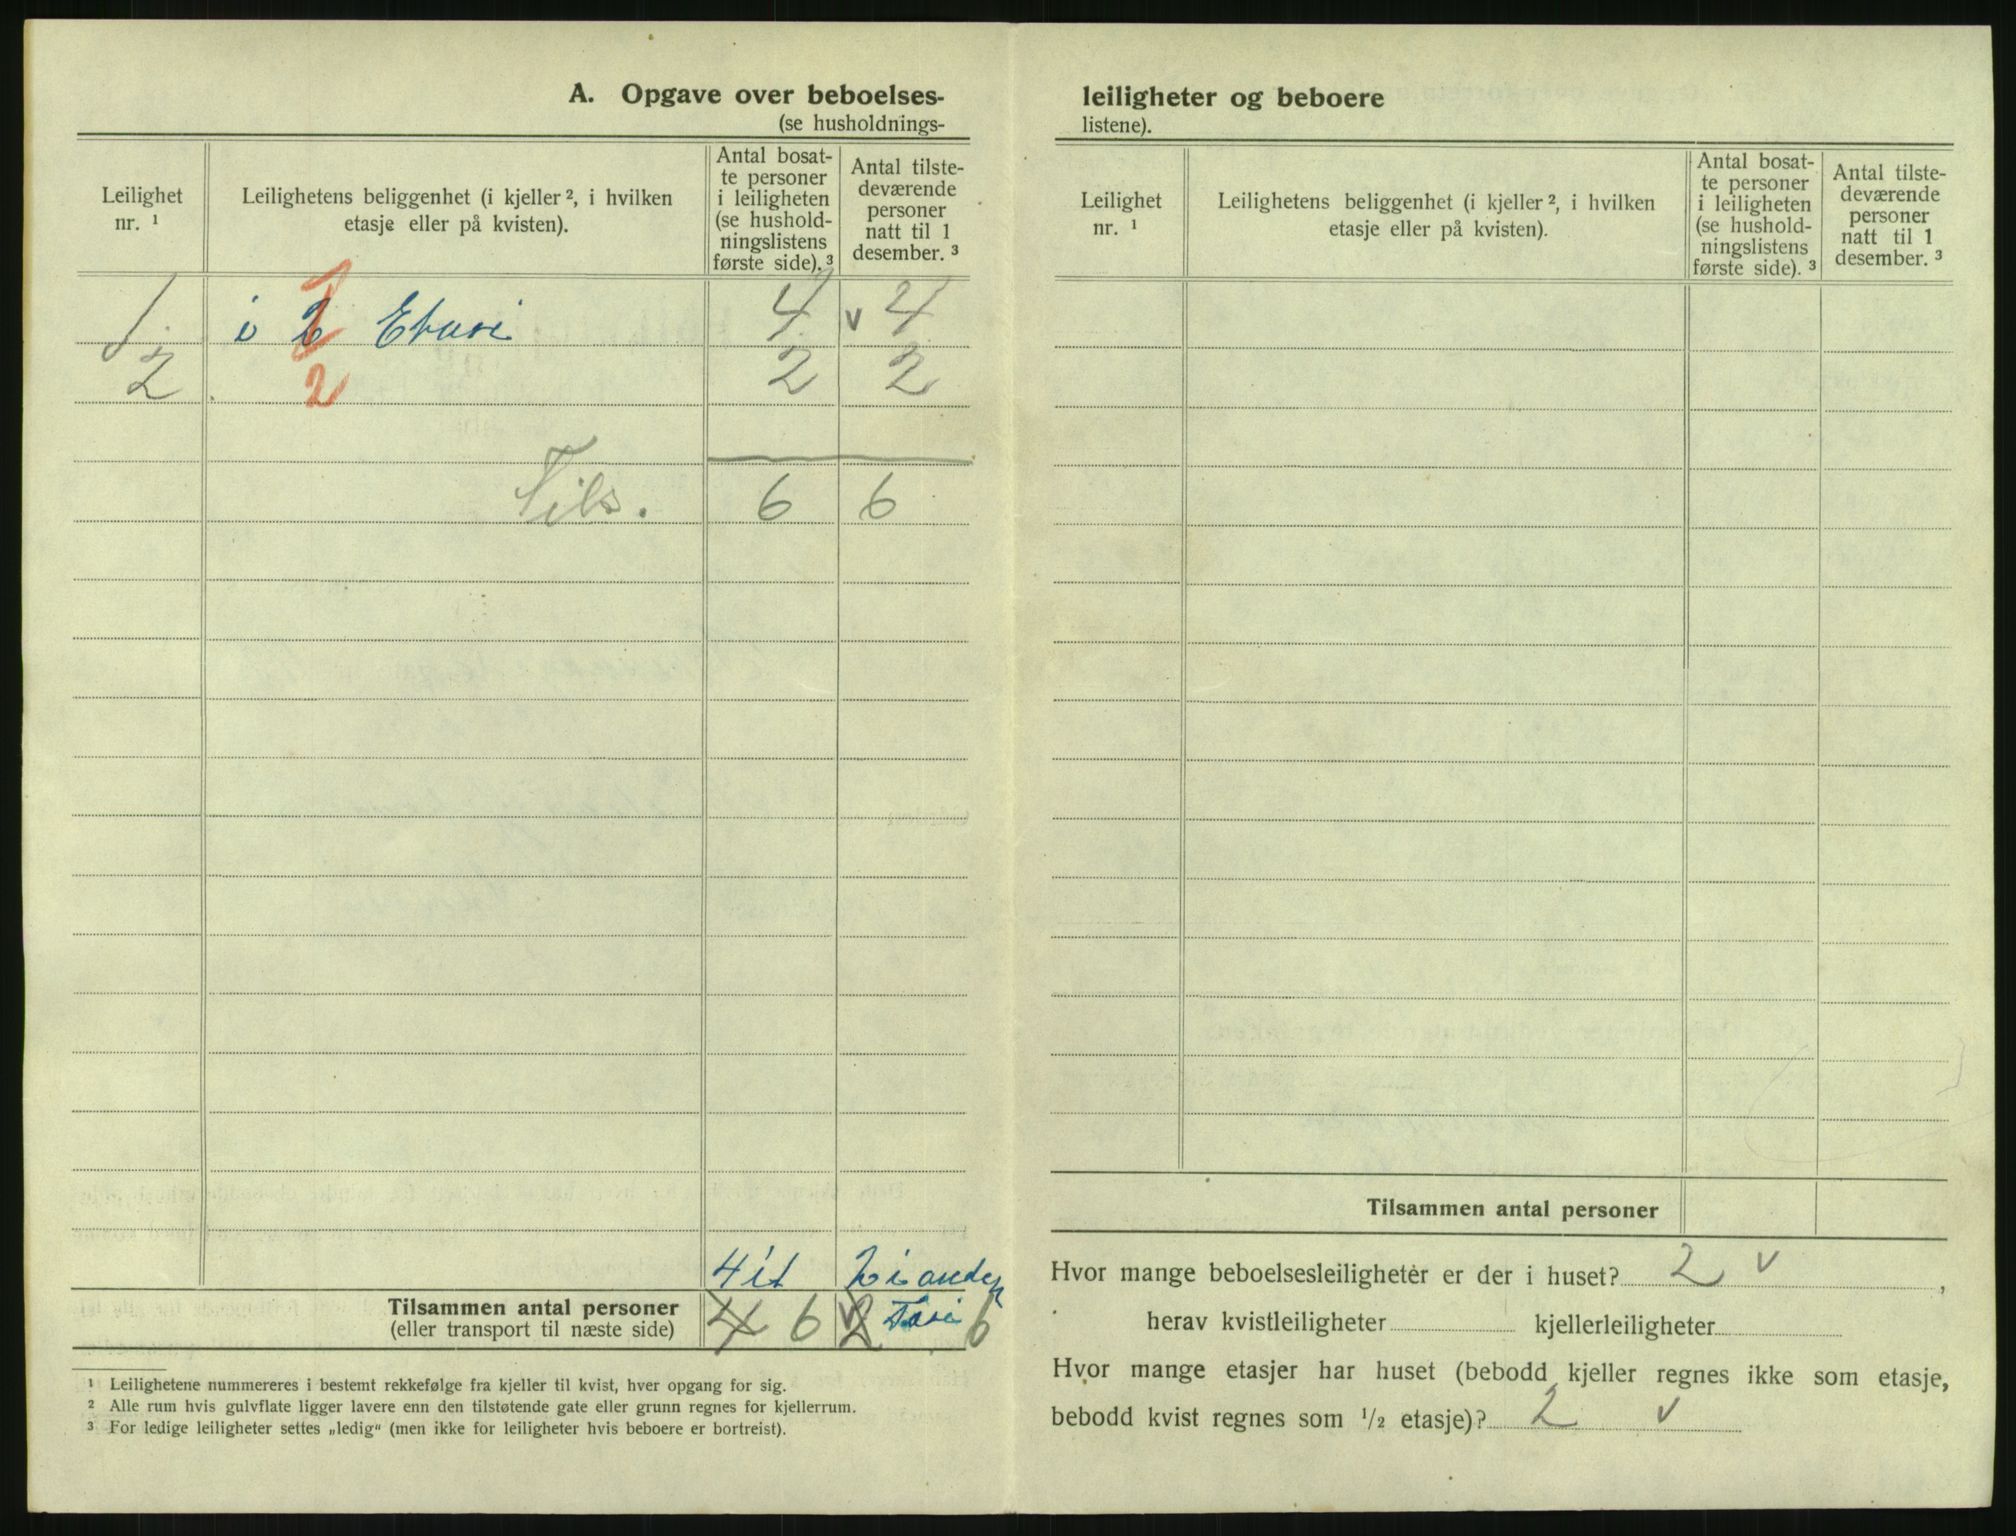 A. Opgave over beboelses-
(se husholdnings-
Leilighet
nr. ¹
Leilighetens beliggenhet (i kjeller ², i hvilken
etasje eller på kvisten).
Antal bosat-
te personer
i leiligheten
(se hushold-
ningslistens
første side). ³
Antal tilste-
deværende
personer
natt til 1
desember. ³
1. i 2 1 Etasi 4 v 4
2 2 2 2
Tils. 6 6
4 i 1 2 i anden
Tilsammen antal personer
(eller transport til næste side)
4 6 v 2 6
¹ Leilighetene nummereres i bestemt rekkefølge fra kjeller til kvist, hver opgang for sig.
² Alle rum hvis gulvflate ligger lavere enn den tilstøtende gate eller grunn regnes for kjellerrum.
³ For ledige leiligheter settes „ledig“ (men ikke for leiligheter hvis beboere er bortreist).
leiligheter og beboere
listene).
Leilighet
nr. ¹
Leilighetens beliggenhet (i kjeller ², i hvilken
etasje eller på kvisten).
Antal bosat-
te personer
i leiligheten
(se hushold-
ningslistens
første side). ³
Antal tilste-
deværende
personer
natt til 1
desember. ³
Tilsammen antal personer
Hvor mange beboelsesleiligheter er der i huset? 2 v ,
herav kvistleiligheter kjellerleiligheter
Hvor mange etasjer har huset (bebodd kjeller regnes ikke som etasje,
bebodd kvist regnes som ¹/₂ etasje)? 2 v